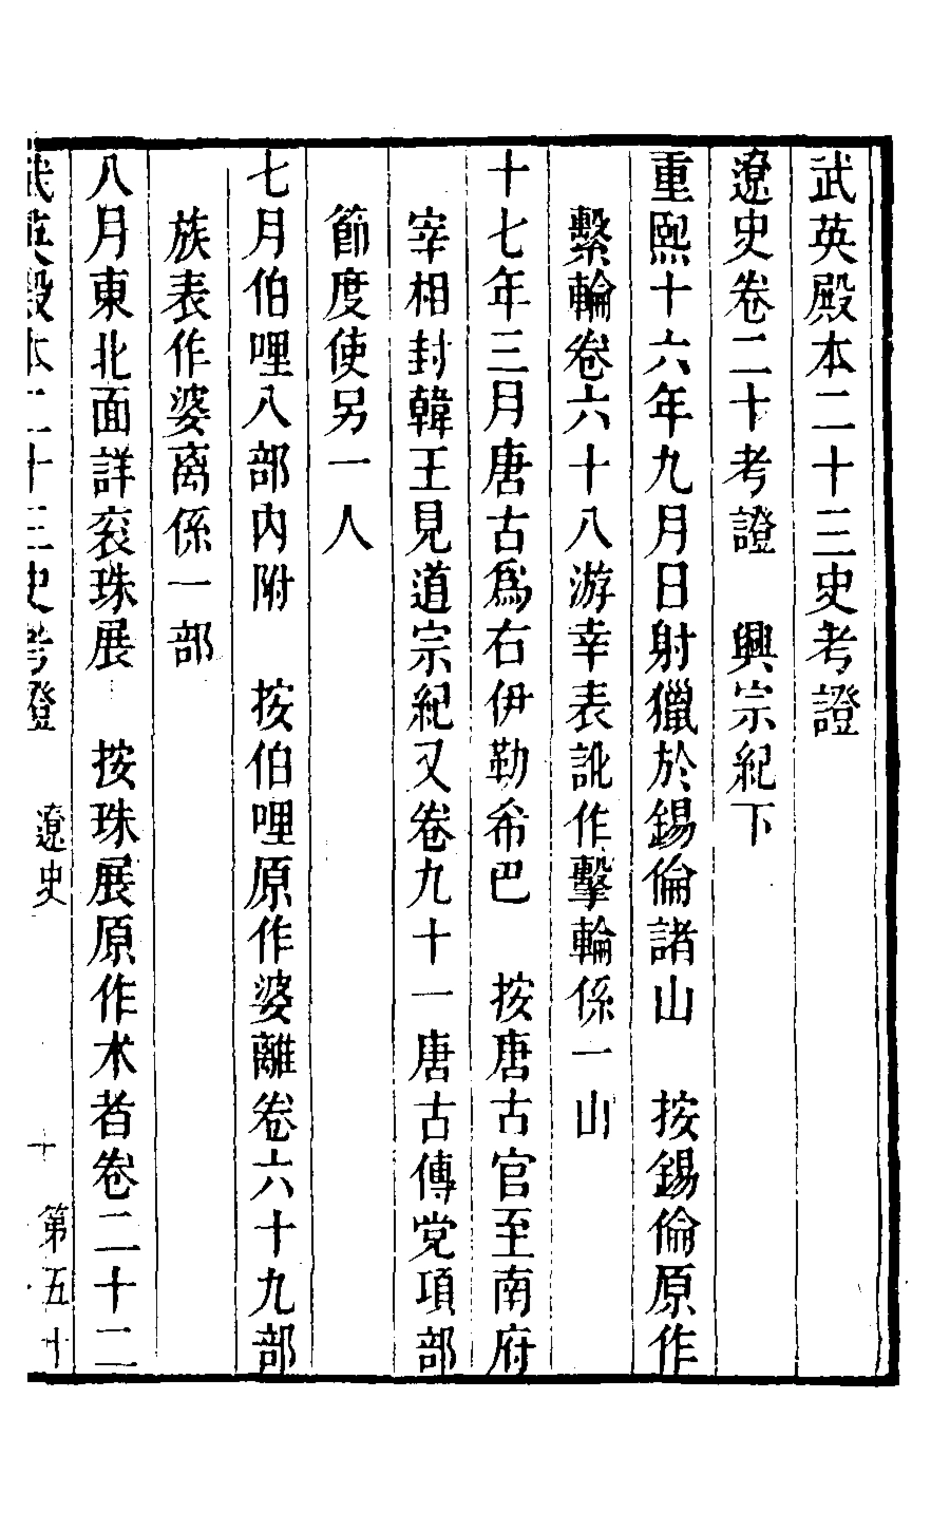 武英殿本二十三史考證
遼史卷二十考證　興宗紀下
重熙十六年九月日射獵於錫倫諸山　按錫倫原作
繫輪卷六十八游幸表訛作擊輪係一山
十七年三月唐古爲右伊勒希巴　按唐古官至南府
宰相封韓王見道宗紀又卷九十一唐古傳党項部
節度使另一人
七月伯哩八部內附　按伯哩原作婆離卷六十九部
族表作婆离係一部
八月東北面詳袞珠展　按珠展原作朮者卷二十二
武英殿本二十三史考證　遼史　十　第五十